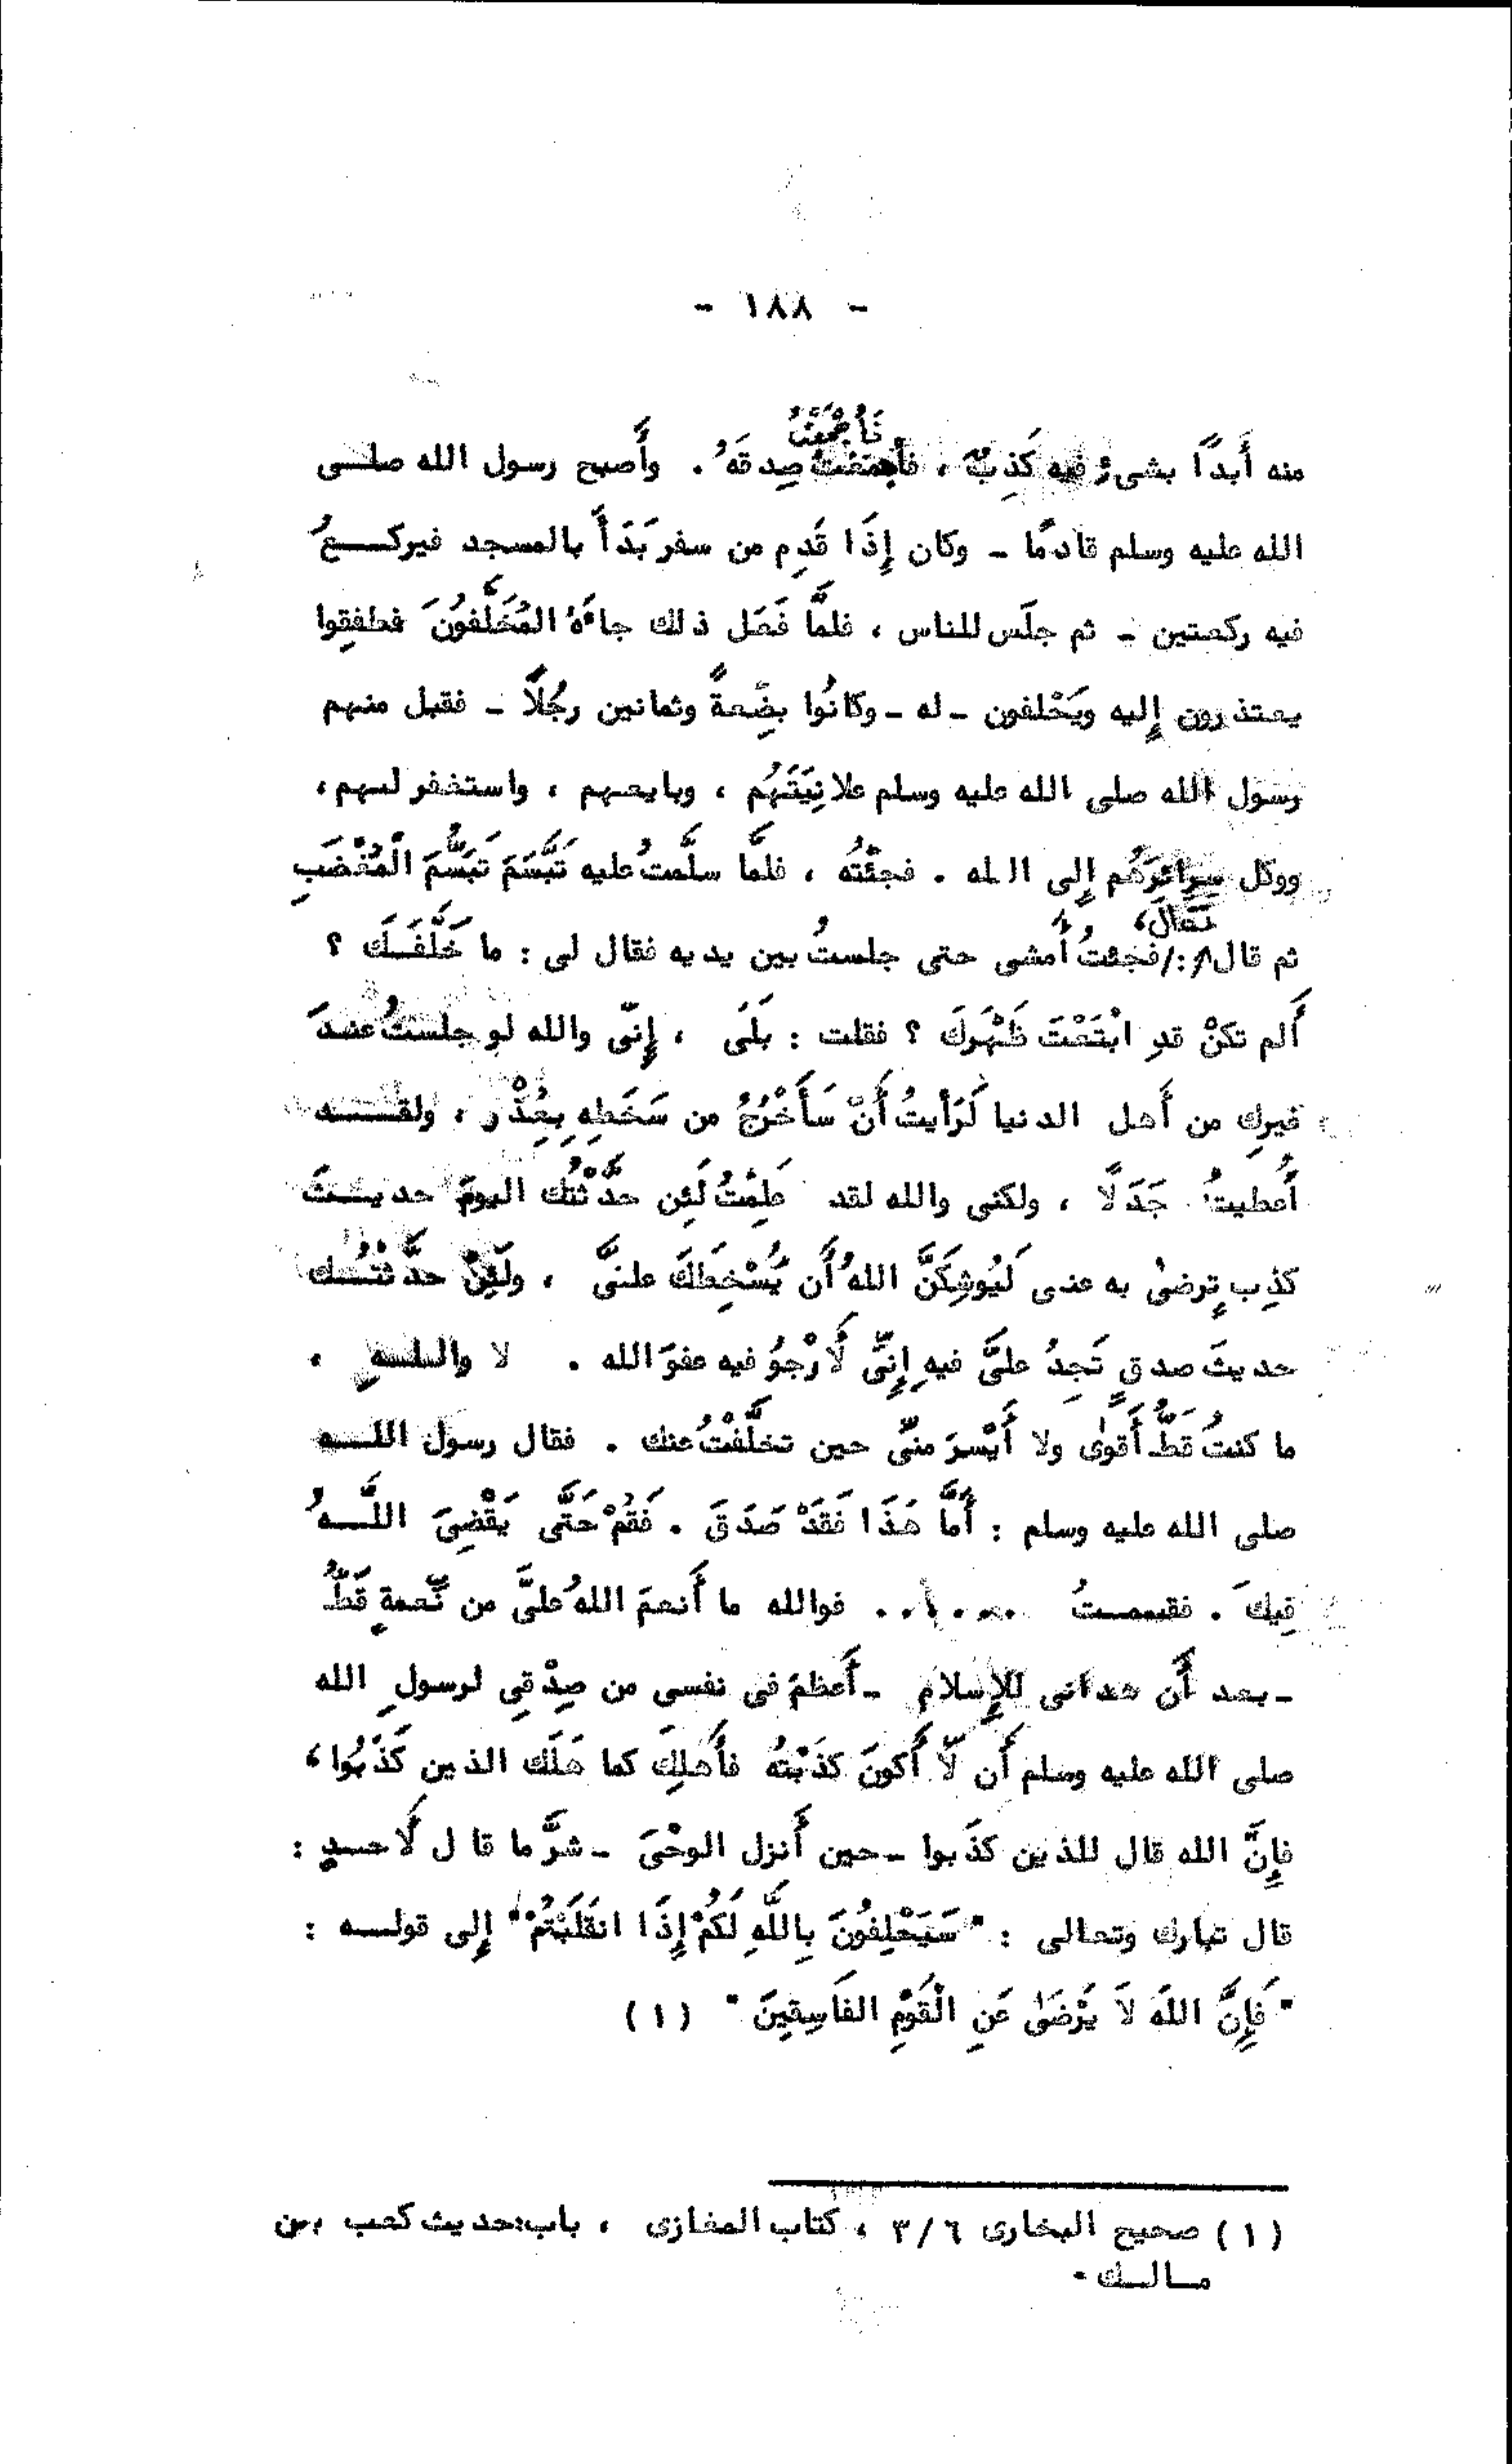 - ١٨٨ -
منه أَبدًا بشىءٍ فيه كَذِبٌ ، فأَجْمَعْتُ صِدقَهُ . وأَصبح رسول الله صلى
الله عليه وسلم قادمًا - وكان إِذَا قَدِم من سفر بَدَأَ بالمسجد فيركعُ
فيه ركعتين - ثم جلَس للناس ، فلمَّا فَعَل ذلك جاءَهُ المُخَلَّفُونَ فطفِقوا
يعتذرون إِليه ويَحْلفون - له - وكانُوا بِضْعةً وثمانين رجُلًا - فقبل منهم
رسول الله صلى الله عليه وسلم علانِيَتَهُم ، وبايعهم ، واستغفر لهم ،
ووكل سرائِرَهُم إِلى الله . فجِئْتُه ، فلمَّا سلَّمتُ عليه تَبَسَّمَ تَبَسُّمَ الْمُغْضَبِ
ثم قال : تَعَالَ، فجئتُ أمشى حتى جلستُ بين يديه فقال لى : ما خَلَّفَكَ ؟
أَلم تكنْ قدِ ابْتَعْتَ ظَهْرَكَ ؟ فقلت : بَلَى ، إِنّى والله لو جلستُ عندَ
غيرِك من أَهل الدنيا لَرَأيتُ أَنْ سَأَخْرُجُ من سَخَطِهِ بِعُذْرٍ ، ولقد
أُعطيتُ جَدَلًا ، ولكنى والله لقد عَلِمْتُ لَئِن حَدَّثْتُك اليومَ حديثَ
كذِبٍ ترضىٰ به عنى لَيُوشِكَنَّ اللهُ أَن يُسْخِطَكَ علىَّ ، ولَئِنْ حدَّثتُك
حديثَ صدقٍ تَجِدُ علىَّ فيهِ إِنِّى لَأرْجوُ فيه عفوَ الله . لا واللهِ ،
ما كنتُ قطُّ أَقوىٰ ولا أَيْسرَ منّى حين تخلَّفْتُ عنك . فقال رسول الله
صلى الله عليه وسلم : أَمَّا هَذَا فَقَدْ صَدَقَ . فَقُمْ حَتَّى يَقْضِىَ اللَّهُ
فِيكَ . فقمتُ ...... فوالله ما أَنعمَ اللهُ علىَّ من نِّعمةٍ قَطُّ
- بعد أَن هدانى لِلإِسلامِ - أَعظمَ فى نفسى من صِدْقِى لرسولِ الله
صلى الله عليه وسلم أَن لّا أَكونَ كذَبْتُه فأَهلِكَ كما هَلَك الذين كَذَبُوا ،
فإِنَّ الله قال للذين كذَبوا - حين أَنزل الوحْىَ - شرَّ ما قال لأَحدٍ :
قال تبارك وتعالى : " سَيَحْلِفُونَ بِاللَّهِ لَكُمْ إِذَا انقَلَبْتُمْ " إِلى قوله :
" فَإِنَّ اللهَ لَا يَرْضَىٰ عَنِ الْقَوْمِ الفَاسِقِينَ " (١)
(١) صحيح البخارى ٣/٦ ، كتاب المغازى ، باب:حديث كعب بن
مالك .